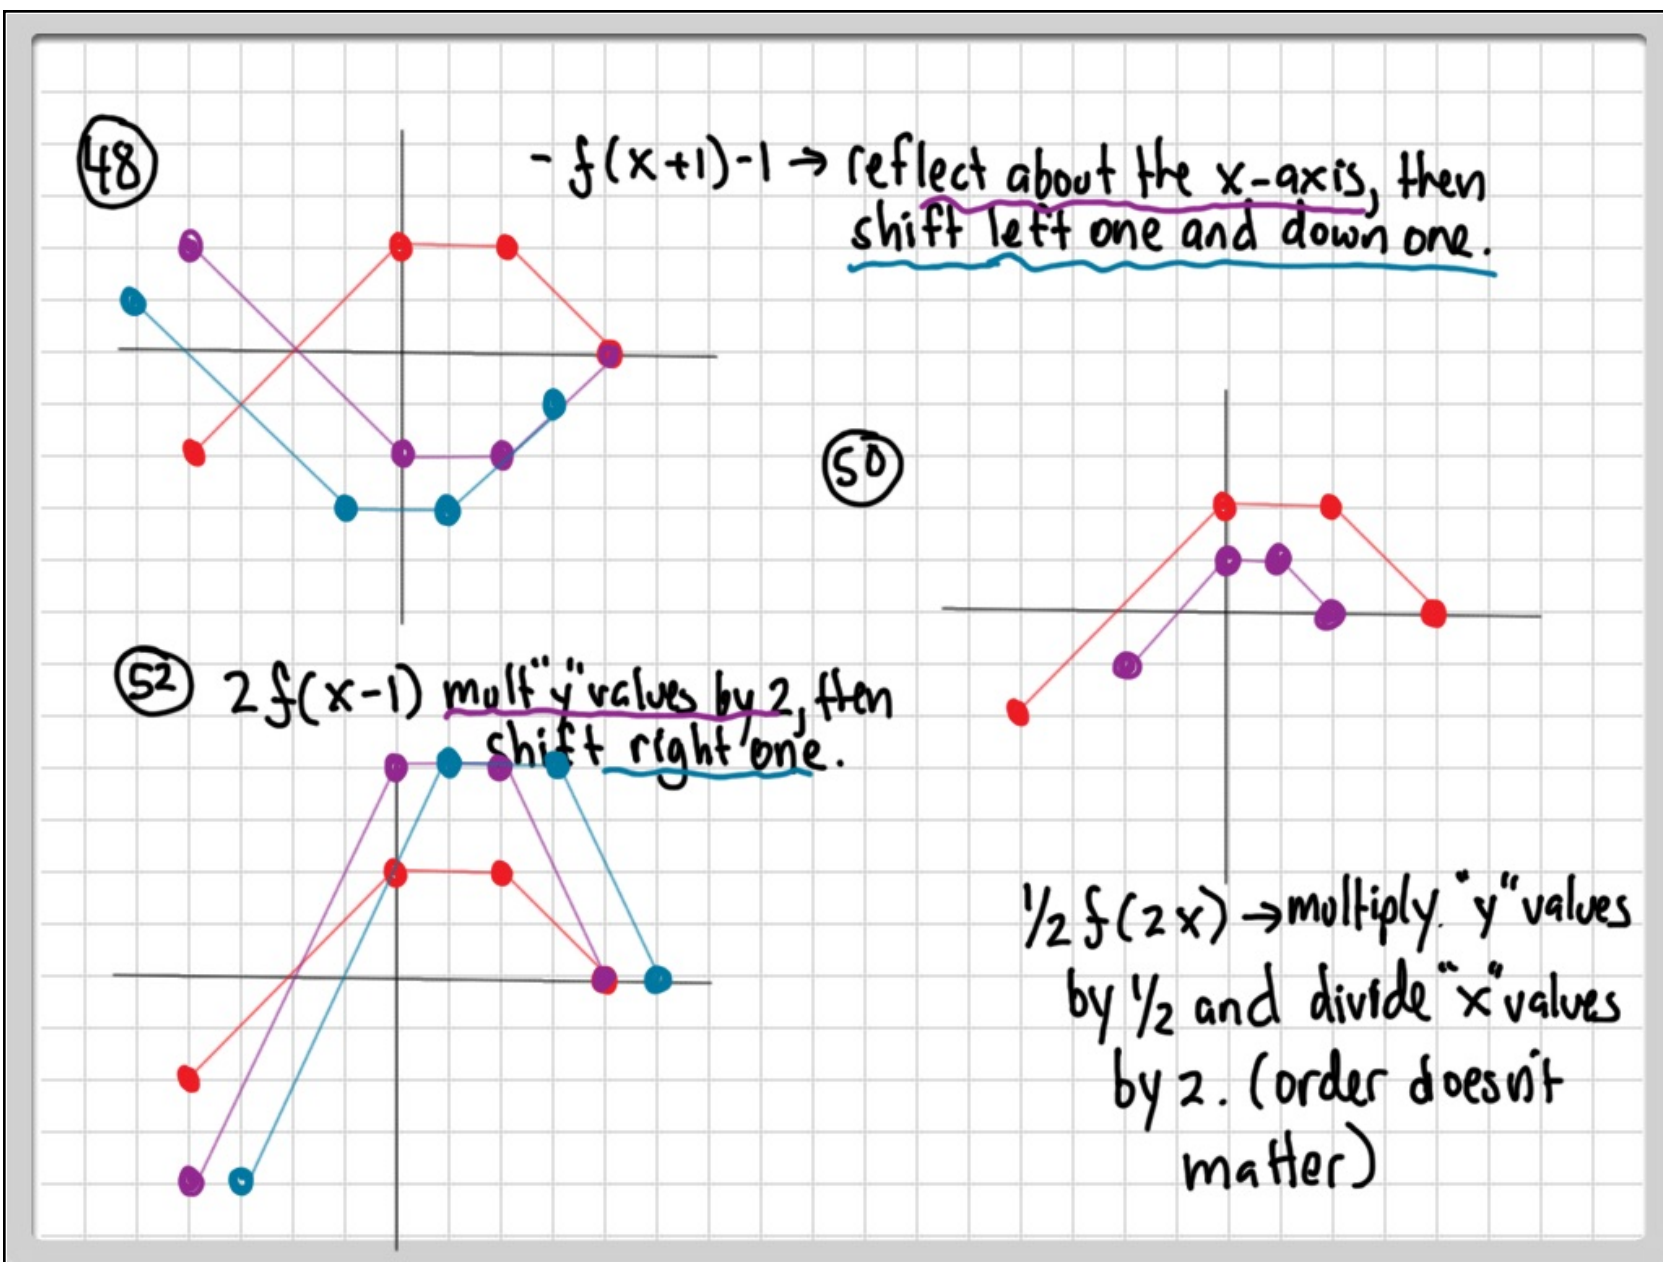 48
-f(x+1)-1 → reflect about the x-axis, then
shift left one and down one.
50
52 2f(x-1) mult "y" values by 2, then
shift right one.
1/2 f(2x) → multiply "y" values
by 1/2 and divide "x" values
by 2. (order doesn't
matter)